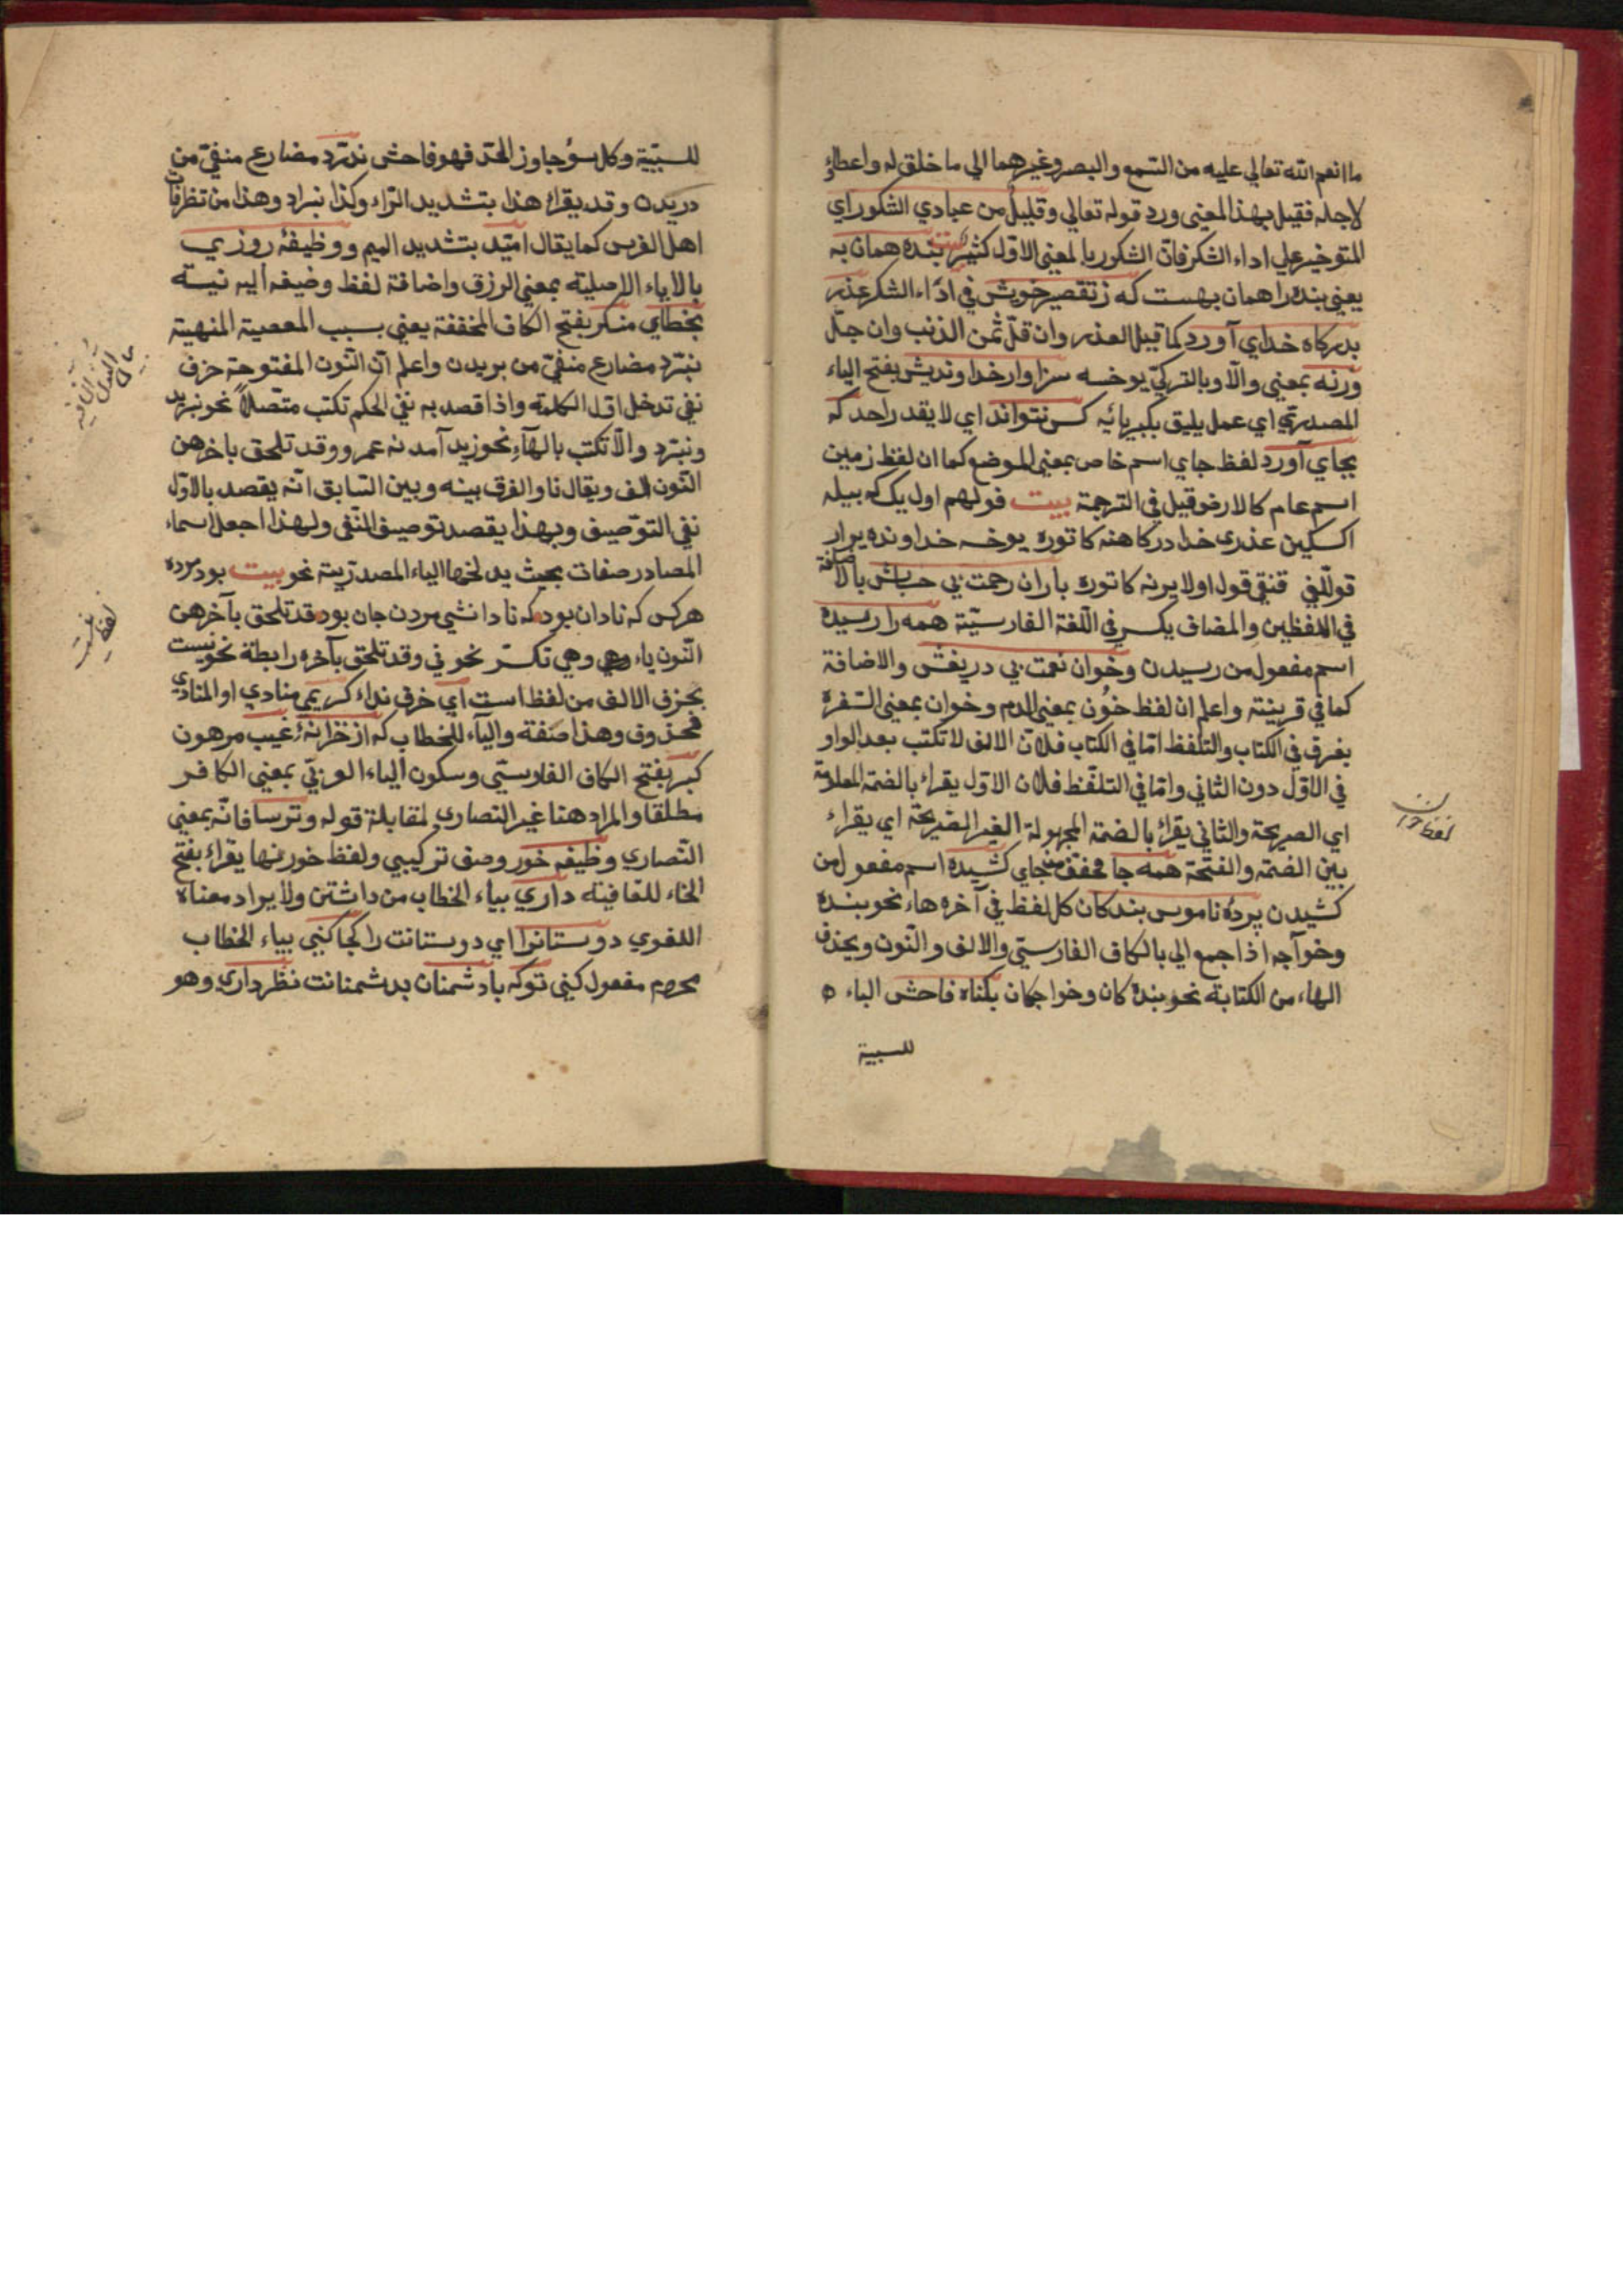 ما انعم الله تعالي عليه من السمع والبصر وغيرهما الي ما خلق له واعطاؤ
لاجله فقيل بهذا المعني ورد قوله تعالي وقليل من عبادي الشكور اي
المتوخير علي اداء الشكر فان الشكور بالمعني الاول كثير بيت بنده همان به
يعني بنده را همان بهست كه ز تقصير خويش في اداء الشكر عذر
بدركاه خداي آورد كما قيل العذر وان قلّ ثمن الذنب وان جلّ
ورنه بمعني والّا وبالتركيّ يوخسه سزاوار خداونديش بفتح الياء
المصدري اي عمل يليق بكبريائه كس نتواند اي لا يقدر احد كه
بجاي آورد لفظ جاي اسم خاص بمعني الموضع كما ان لفظ زمين
اسم عام كالارض قيل في الترجمة بيت قولهم اول يك كه بيله
اكسكين عذرى خدا دركاهنه كاتوره يوخسه خداونده يرار
قوللغي قنقي قول اولا يرنه كاتوره باران رحمت بي حسابش بالاضافة
في اللفظين والمضاف يكسر في اللغة الفارسيّة همه را رسيده
اسم مفعول من رسيدن وخوان نعمت بي دريغش والاضافة
كما في قرينته واعلم ان لفظ خُون بمعني الدم وخوان بمعني السفره
يفرق في الكتاب والتلفظ امّا في الكتاب فلانّ الالف لا تكتب بعد الواو
في الاوّل دون الثاني وامّا في التلفّظ فلان الاوّل يقراء بالضمة المعلومة
اي الصريحة والثاني يقراء بالضمة المجهولة الغير الصّريحة اي يقراء
بين الضمة والفتحة همه جا مخفف من جاي كشيده اسم مفعول من
كشيدن پردهٔ ناموس بندكان كل لفظ في آخره هاء نحو بنده
وخواجه اذا جمع الي بالكاف الفارسيّ والالف والنّون ويحذف
الهاء من الكتابة نحو بندكان وخواجكان بكناه فاحش الباء
للسببية
لفظ خوان
للسببيّة وكل سؤ جاوز الحدّ فهو فاحش ندرّد مضارع منفيّ من
دريدن وقد يقراء هذا بتشديد الرّاء وكذا نبرد وهذا من تظرفات
اهل الفرس كما يقال امّيد بتشديد الميم ووظيفهٔ روزي
بالاياء الاصلية بمعني الرزق واضافة لفظ وضيفه اليه نيسته
بخطاي منكر بفتح الكاف المخففة يعني بسبب المعصية المنهية
نبرّد مضارع منفيّ من بريدن واعلم انّ النّون المفتوحة حرف
نفي تدخل اوّل الكلمة واذا قصد به نفي الحكم تكتب متّصلاً نحو نبريد
ونبرّد والّا تكتب بالهآء نحو زيد آمد نه عمرو وقد تلحق باخرهن
النّون الف ويقال نا والفرق بينه وبين السّابق انّه يقصد بالاوّل
نفي التوّصيف وبهذا يقصد توصيف النّفي ولهذا اجعل اسماء
المصادر صفات بحيث يدلخها الياء المصدرّيتة نحو بيت بود مرده
هركس كه نادان بود كه نادانشي مردن جان بود قد تلحق بآخرهن
النّون ياء وهي وهي تكسر نحو ني وقد تلحق بآخره رابطة نحو نيست
بحذف الالف من لفظ است اي حرف نداء كريمي منادي او المنادي
محذوف وهذا صفة والياء للخطاب كه از خزانهٔ غيب مرهون
كبر بفتح الكاف الفارسيّ وسكون الباء العربيّ بمعني الكافر
مطلقا والمراد هنا غير النصاري لمقابلة قوله وترسا فانّه بمعني
النّصاري وظيفه خور وصف تركيبي ولفظ خور منها يقراء بفتح
الخاء للقافية داري بياء الخطاب من داشتن ولا يراد معناه
اللغوي دوستانرا اي دوستانت را كجا كني بياء الخطاب
محروم مفعول كني توكه با دشمنان بدشمنانت نظر داري وهو